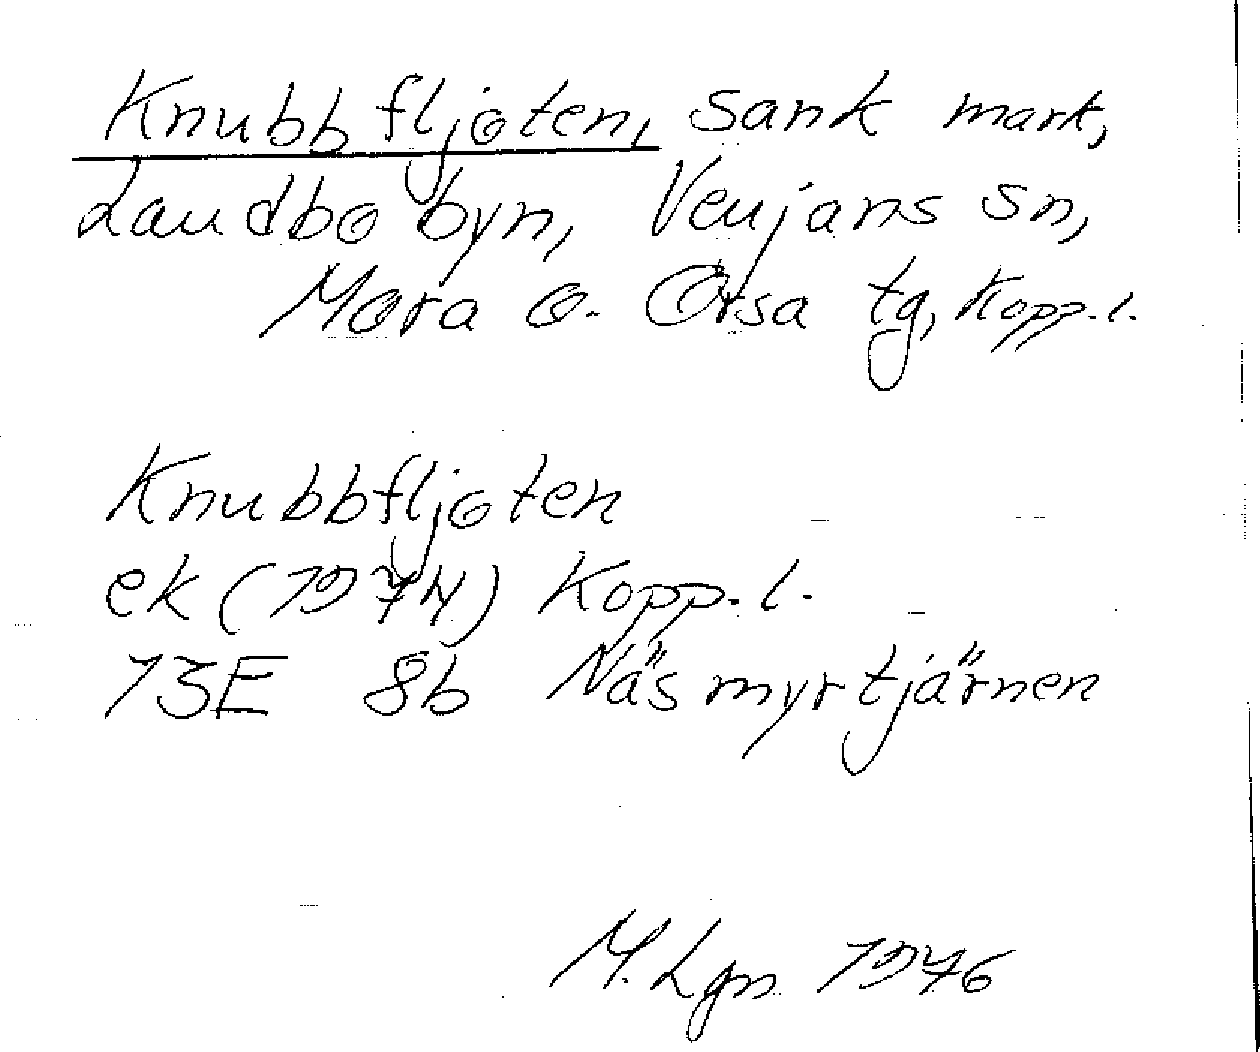 Knubbfljoten, sank mark,
Landbobyn, Venjans sn,
Mora o. Orsa tg, Kopp. l.
Knubbfljoten
ek (1974) Kopp. l.
13E 8b Näsmyrtjärnen
M. Lgn 1976